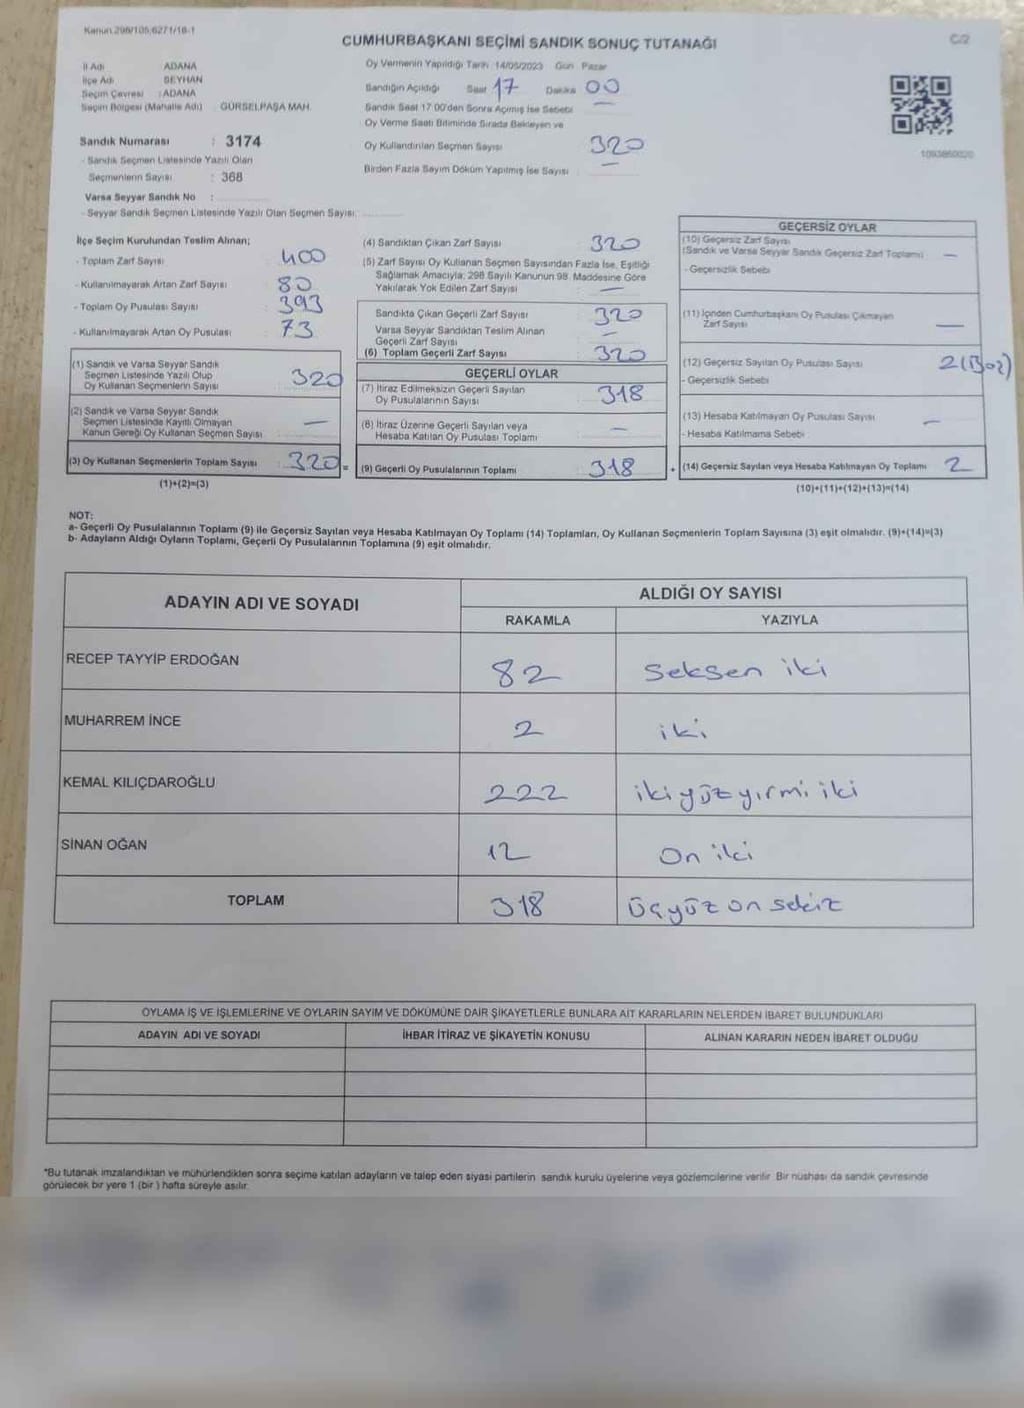 Kanun 298/105,6271/18-1
C/2
CUMHURBAŞKANI SEÇİMİ SANDIK SONUÇ TUTANAĞI
İl Adı ADANA
İlçe Adı SEYHAN
Seçim Çevresi : ADANA
Seçim Bölgesi (Mahalle Adı) : GÜRSELPAŞA MAH.
Sandık Numarası : 3174
- Sandık Seçmen Listesinde Yazılı Olan
Seçmenlerin Sayısı : 368
Varsa Seyyar Sandık No :
- Seyyar Sandık Seçmen Listesinde Yazılı Olan Seçmen Sayısı:
Oy Vermenin Yapıldığı Tarih :14/05/2023 Gün : Pazar
Sandığın Açıldığı Saat 17 Dakika 00
Sandık Saat 17:00'den Sonra Açımış İse Sebebi —
Oy Verme Saati Bitiminde Sırada Bekleyen ve
Oy Kullandırılan Seçmen Sayısı 320
Birden Fazla Sayım Döküm Yapılmış İse Sayısı —
1093860020
İlçe Seçim Kurulundan Teslim Alınan;
- Toplam Zarf Sayısı : 400
- Kullanılmayarak Artan Zarf Sayısı : 80
- Toplam Oy Pusulası Sayısı : 393
- Kullanılmayarak Artan Oy Pusulası : 73
(1) Sandık ve Varsa Seyyar Sandık
Seçmen Listesinde Yazılı Olup
Oy Kullanan Seçmenlerin Sayısı : 320
(2) Sandık ve Varsa Seyyar Sandık
Seçmen Listesinde Kayıtlı Olmayan
Kanun Gereği Oy Kullanan Seçmen Sayısı —
(3) Oy Kullanan Seçmenlerin Toplam Sayısı : 320 =
(1)+(2)=(3)
(4) Sandıktan Çıkan Zarf Sayısı : 320
(5) Zarf Sayısı Oy Kullanan Seçmen Sayısından Fazla İse, Eşitliği
Sağlamak Amacıyla; 298 Sayılı Kanunun 98. Maddesine Göre
Yakılarak Yok Edilen Zarf Sayısı : —
Sandıkta Çıkan Geçerli Zarf Sayısı : 320
Varsa Seyyar Sandıktan Teslim Alınan
Geçerli Zarf Sayısı : —
(6) Toplam Geçerli Zarf Sayısı : 320
GEÇERLİ OYLAR
(7) İtiraz Edilmeksizin Geçerli Sayılan
Oy Pusulalarının Sayısı : 318
(8) İtiraz Üzerine Geçerli Sayılan veya
Hesaba Katılan Oy Pusulası Toplamı : —
(9) Geçerli Oy Pusulalarının Toplamı : 318 +
GEÇERSİZ OYLAR
(10) Geçersiz Zarf Sayısı
(Sandık ve Varsa Seyyar Sandık Geçersiz Zarf Toplamı) —
- Geçersizlik Sebebi
(11) İçinden Cumhurbaşkanı Oy Pusulası Çıkmayan
Zarf Sayısı —
(12) Geçersiz Sayılan Oy Pusulası Sayısı 2 (Boz)
- Geçersizlik Sebebi
(13) Hesaba Katılmayan Oy Pusulası Sayısı —
- Hesaba Katılmama Sebebi
(14) Geçersiz Sayılan veya Hesaba Katılmayan Oy Toplamı 2
(10)+(11)+(12)+(13)=(14)
NOT:
a- Geçerli Oy Pusulalarının Toplamı (9) ile Geçersiz Sayılan veya Hesaba Katılmayan Oy Toplamı (14) Toplamları, Oy Kullanan Seçmenlerin Toplam Sayısına (3) eşit olmalıdır. (9)+(14)=(3)
b- Adayların Aldığı Oyların Toplamı, Geçerli Oy Pusulalarının Toplamına (9) eşit olmalıdır.
ADAYIN ADI VE SOYADI ALDIĞI OY SAYISI
RAKAMLA YAZIYLA
RECEP TAYYİP ERDOĞAN 82 seksen iki
MUHARREM İNCE 2 iki
KEMAL KILIÇDAROĞLU 222 iki yüz yirmi iki
SİNAN OĞAN 12 On iki
TOPLAM 318 üçyüz on sekiz
OYLAMA İŞ VE İŞLEMLERİNE VE OYLARIN SAYIM VE DÖKÜMÜNE DAİR ŞİKAYETLERLE BUNLARA AİT KARARLARIN NELERDEN İBARET BULUNDUKLARI
ADAYIN ADI VE SOYADI İHBAR İTİRAZ VE ŞİKAYETİN KONUSU ALINAN KARARIN NEDEN İBARET OLDUĞU
*Bu tutanak imzalandıktan ve mühürlendikten sonra seçime katılan adayların ve talep eden siyasi partilerin sandık kurulu üyelerine veya gözlemcilerine verilir. Bir nüshası da sandık çevresinde
görülecek bir yere 1 (bir ) hafta süreyle asılır.